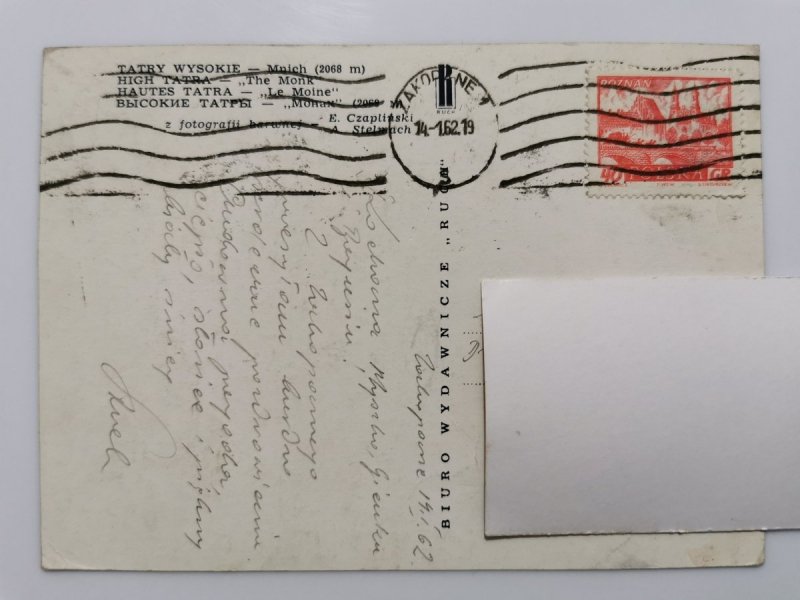 TATRY WYSOKIE – Mnich (2068 m)
HIGH TATRA – „The Monk"
HAUTES TATRA – „Le Moine"
ВЫСОКИЕ ТАТРЫ – „Монах" (2068 m)
z fotografii barwnej – E. Czapliński
A. Stelmach
RUCH
ZAKOPANE 1
14-1.62.19
POZNAŃ
40 POLSKA GR
BIURO WYDAWNICZE „RUCH"
Zakopane 14.I.62.
Kochana
Z Zakopanego
przesyłam
serdeczne pozdrowienia
pogoda,
ciepło, słońce i piękny
biały śnieg